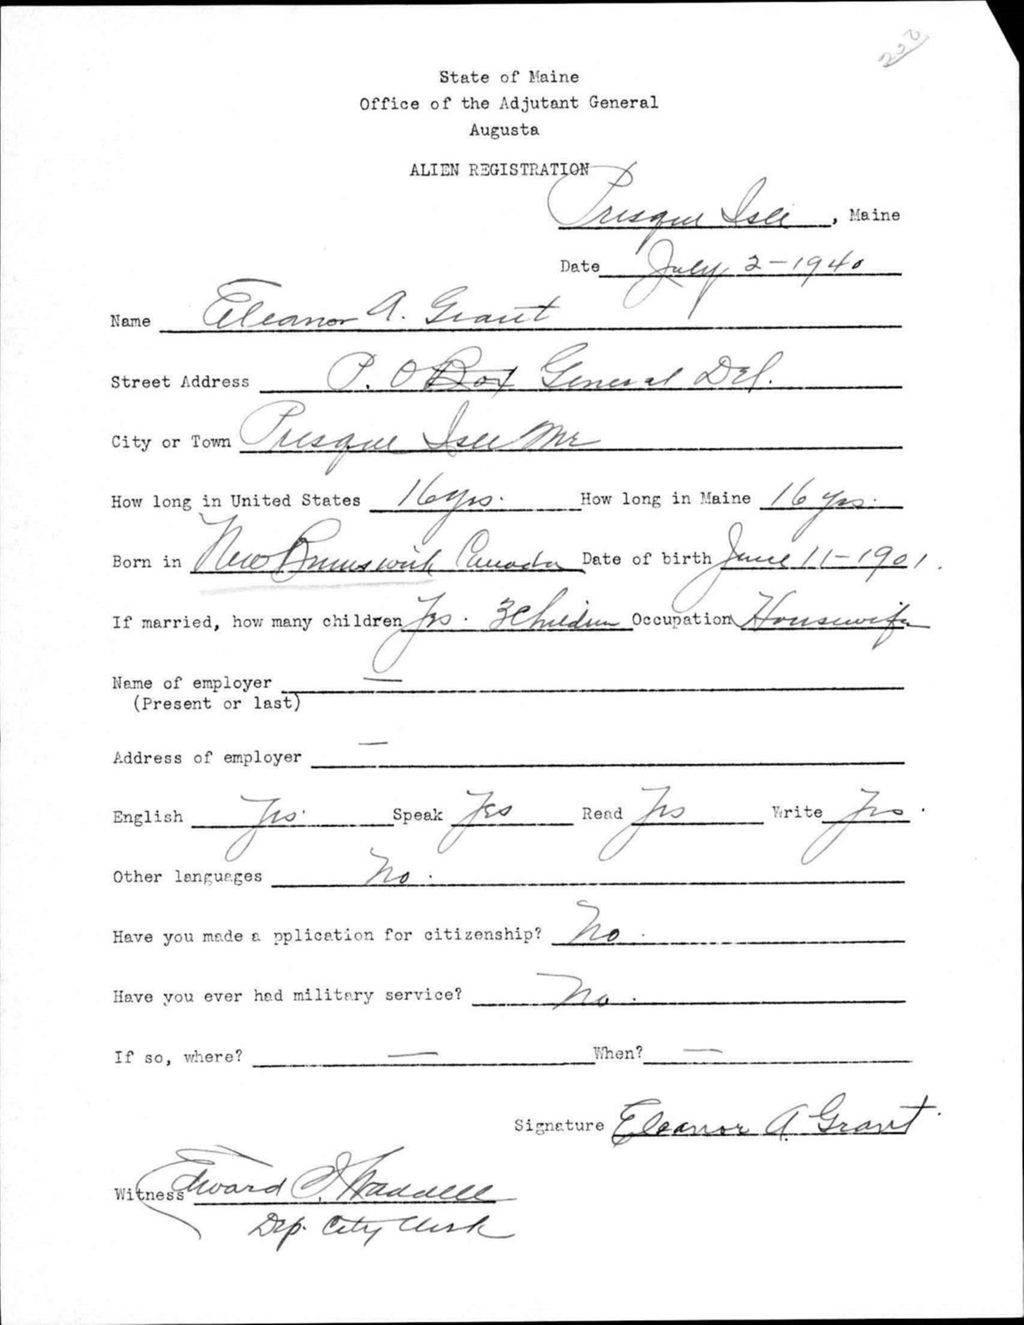 State of Maine
Office of the Adjutant General
Augusta
ALIEN REGISTRATION
Presque Isle, Maine
Date July 2-1940
Name Eleanor A. Grant
Street Address P. O Box General Del.
City or Town Presque Isle Me
How long in United States 16 yrs. How long in Maine 16 yrs.
Born in New Brunswick Canada Date of birth June 11-1901.
If married, how many children Yes. 3 Children Occupation Housewife
Name of employer —
(Present or last)
Address of employer —
English Yes. Speak Yes Read Yes Write Yes.
Other languages No.
Have you made a pplication for citizenship? No.
Have you ever had military service? No.
If so, where? — When? —
Signature Eleanor A. Grant.
Witness Edward Waddell
Dep. City Clerk